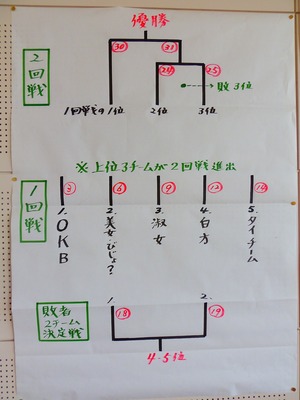 優勝
2回戦
30
31
24
25
敗3位
1回戦の1位
2位
3位
※上位3チームが2回戦進出
1回戦
3
6
9
12
1. OKB
2. 美女・びじょ?
3. 淑女
4. 白方
5. タイチーム
敗者
2チーム
決定戦
1
2.
18
19
4-5位